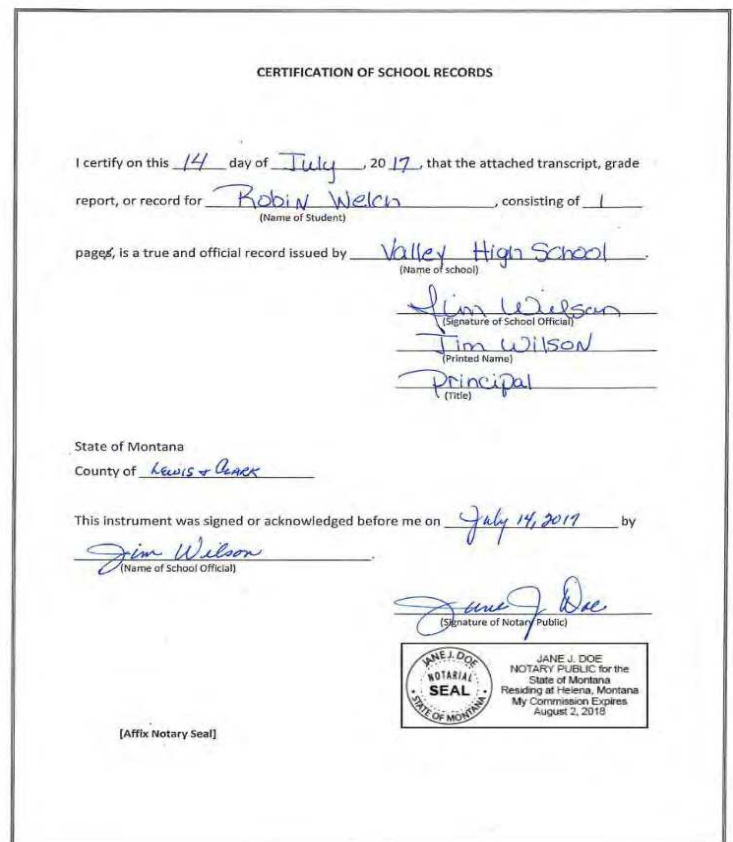 CERTIFICATION OF SCHOOL RECORDS
I certify on this 14 day of July, 2017, that the attached transcript, grade
report, or record for Robin Welch, consisting of 1
(Name of Student)
pages, is a true and official record issued by Valley High School.
(Name of school)
Jim Wilson
(Signature of School Official)
Jim Wilson
(Printed Name)
Principal
(Title)
State of Montana
County of Lewis & Clark
This instrument was signed or acknowledged before me on July 14, 2017 by
Jim Wilson.
(Name of School Official)
Jane J Doe
(Signature of Notary Public)
JANE J. DOE
NOTARIAL
SEAL
STATE OF MONTANA
JANE J. DOE
NOTARY PUBLIC for the
State of Montana
Residing at Helena, Montana
My Commission Expires
August 2, 2018
[Affix Notary Seal]